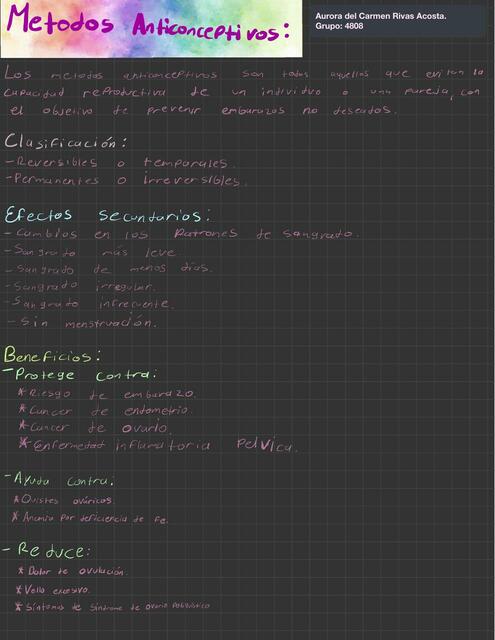 Metodos Anticonceptivos:
Aurora del Carmen Rivas Acosta.
Grupo: 4808
Los metodos anticonceptivos son todos aquellos que evitan la
capacidad reproductiva de un individuo o una pareja, con
el objetivo de prevenir embarazos no deseados.
Clasificación:
-Reversibles o temporales.
-Permanentes o irreversibles.
Efectos secundarios:
-Cambios en los patrones de sangrado.
-Sangrado más leve
-Sangrado de menos días.
-Sangrado irregular.
-Sangrado infrecuente.
-Sin menstruación.
Beneficios:
-Protege contra:
*Riesgo de embarazo.
*Cancer de endometrio.
*Cancer de ovario.
*Enfermedad inflamatoria Pelvica.
-Ayuda contra:
*Quistes ováricos.
*Anemia por deficiencia de Fe.
-Reduce:
*Dolor de ovulación.
*Vello excesivo.
*Síntomas de Síndrome de ovario Poliquístico